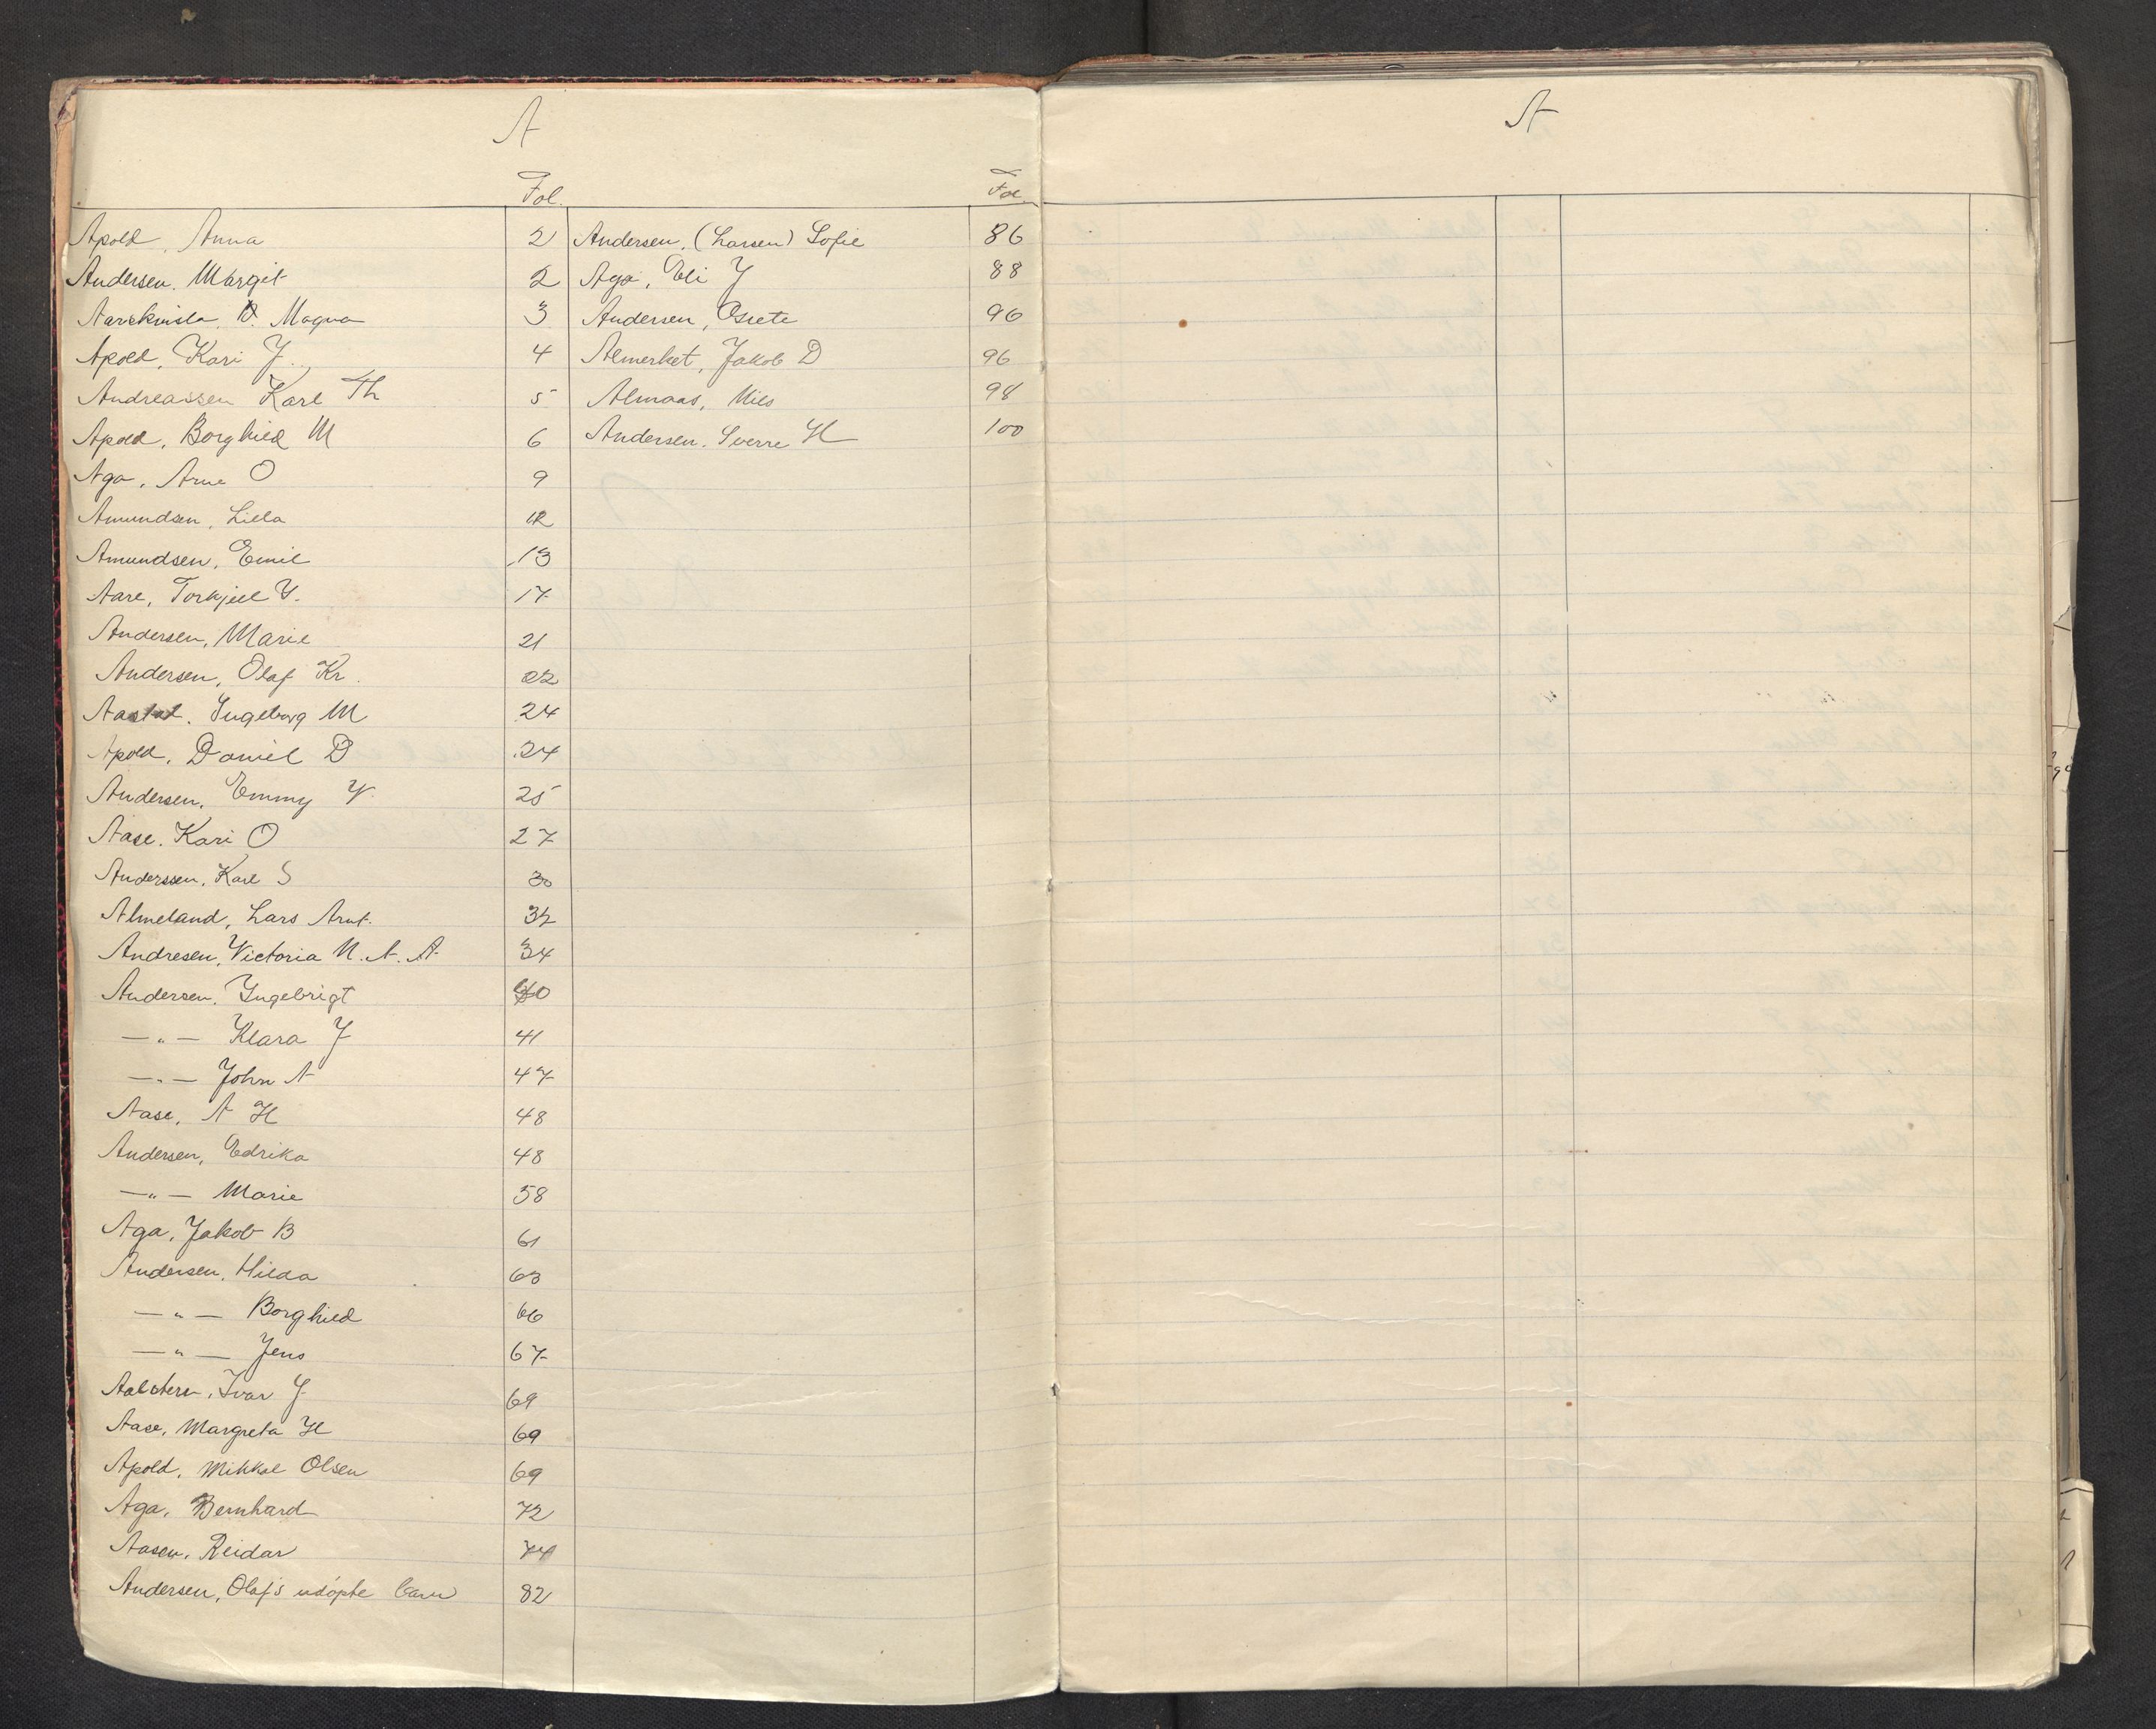 A
Fol.
Apold, Anna 2
Andersen, Margit 2
Magna 3
Apold, Kari J. 4
Andreassen Karl Th 5
Apold, Borghild M 6
Aga, Arne O 9
Amundsen, Lilla 12
Amundsen, Emil 13
Aare, Torkjell 17
Andersen, Marie 21
Andersen, Olaf Kr. 22
Ingeborg M 24
Apold, Daniel D 24
Andersen, Emmy V. 25
Aase, Kari O 27
Anderssen, Karl S 30
Almeland, Lars Arnt. 32
Andresen, Victoria N. A. A. 34
Andersen, Ingebrigt 40
—"— Klara J 41
—"— John A 47
Aase, A H 48
Andersen, Edrika 48
—"— Marie 58
Aga, Jakob B 61
Andersen, Hilda 63
—"— Borghild 66
—"— Jens 67
Ivar J 69
Aase, Margreta H 69
Apold, Mikkal Olsen 69
Aga, Bernhard 72
Aasen, Reidar 74
Andersen, Olaf's udöpte barn 82
Fol.
Andersen, (Larsen) Sofie 86
Aga, Eli J 88
Andersen, 96
Almerket, Jakob D 96
Almaas, Nils 98
Andersen, Sverre H 100
A